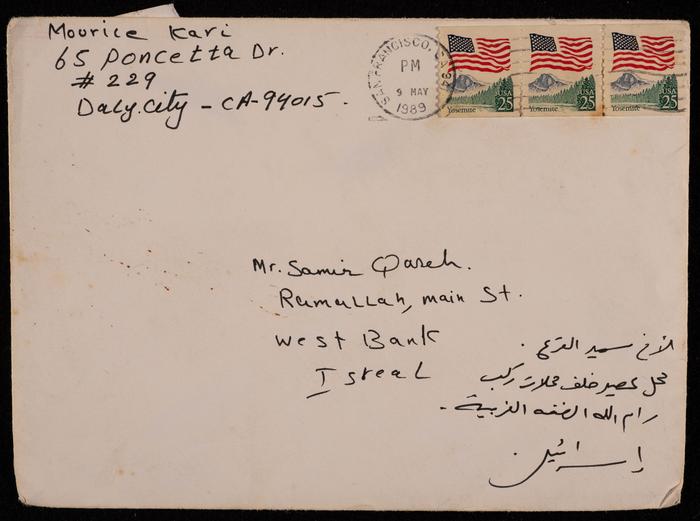 Mourice Kari
65 Poncetta Dr.
# 229
Daly.City - CA-94015.
SAN FRANCISCO, CA 941
PM
9 MAY
1989
USA 25
Yosemite
USA 25
Yosemite
USA 25
Yosemite
Mr. Samir Qareh.
Ramallah, main St.
West Bank
Isreal
الأخ سمير القرع.
محل عصير خلف محلات ركب
رام الله الضفه الغربية -
إسرائيل.